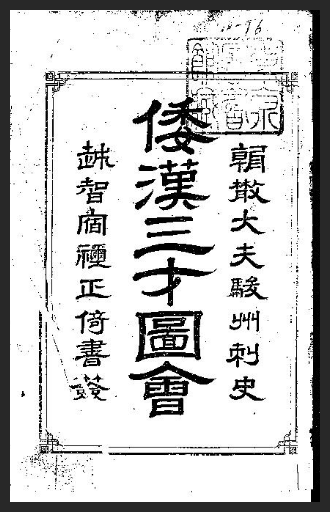 朝散大夫駿州刺史
倭漢三才圖會
越智宿禰正倚書簽